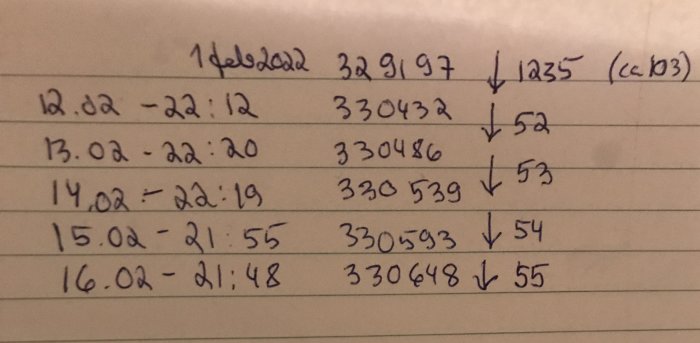 1 feb 2022 329197 ↓ 1235 (ca 103)
12.02 - 22:12 330432 ↓ 52
13.02 - 22:20 330486 ↓ 53
14.02 - 22:19 330539 ↓ 54
15.02 - 21:55 330593 ↓ 55
16.02 - 21:48 330648